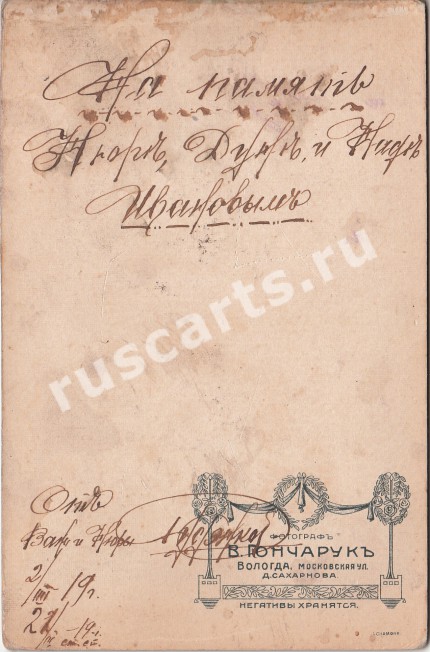 На память
Нюрѣ, Дусѣ и Надѣ
Ивановымъ
ruscarts.ru
Отъ
Вани и Нюры
2/III 19 г.
ФОТОГРАФЪ
В. ГОНЧАРУКЪ
ВОЛОГДА, МОСКОВСКАЯ УЛ.
Д. САХАРНОВА
НЕГАТИВЫ ХРАНЯТСЯ.